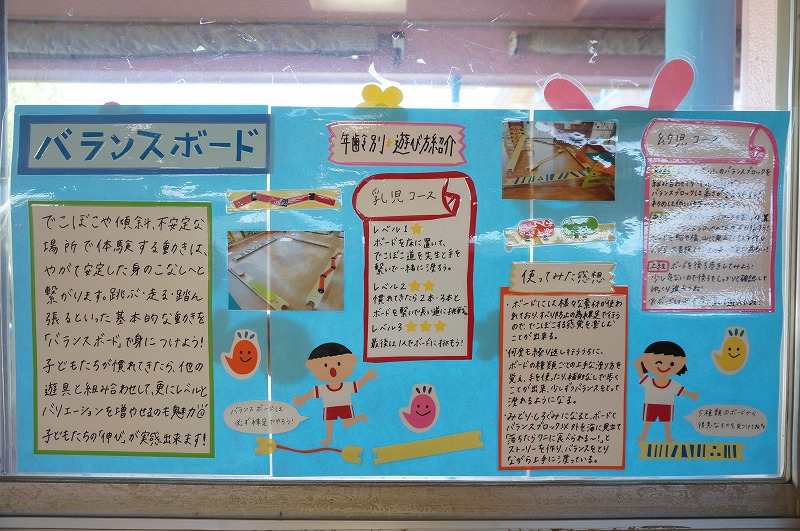 バランスボード
でこぼこや傾斜、不安定な
場所で体験する動きは、
やがて安定した身のこなしへと
繋がります。跳ぶ・走る・踏ん
張るといった基本的な動きを
「バランスボード」で身につけよう!
子どもたちが慣れてきたら、他の
遊具と組み合わせて、更にレベルと
バリエーションを増やせるのも魅力
子どもたちの「伸び」が実感出来ます!
年齢別・遊び方紹介
乳児コース
レベル1★
ボードを床に置いて、
でこぼこ道を先生と手を
繋いで一緒に渡ろう。
レベル2★★
慣れてきたら2本・3本と
ボードを繋いで長い道に挑戦。
レベル3★★★
最後は1人でボードに挑もう!
バランスボードは
必ず裸足でやろう!
使ってみた感想
・ボードには様々な素材が使わ
れており、すべり防止の為裸足で行う
ので、でこぼこする感覚を楽しむ
ことが出来る。
・何度も繰り返し行ううちに、
ボードの種類ごとの上手な渡り方を
覚え、手を使ったり、補助なしで歩く
ことが出来、少しずつバランスをとって
渡れるようになる。
・みどり・しろぐみになると、ボードと
バランスブロック以外を海に見立て
「落ちたらワニに食べられる〜!」と
ストーリーを作り、バランスをとり
ながら上手に渡っている。
幼児コース
のバランスブロックを
上級 ボードを後ろ歩きしてみよう!
5種類のボードから
得意なものを見つけてね